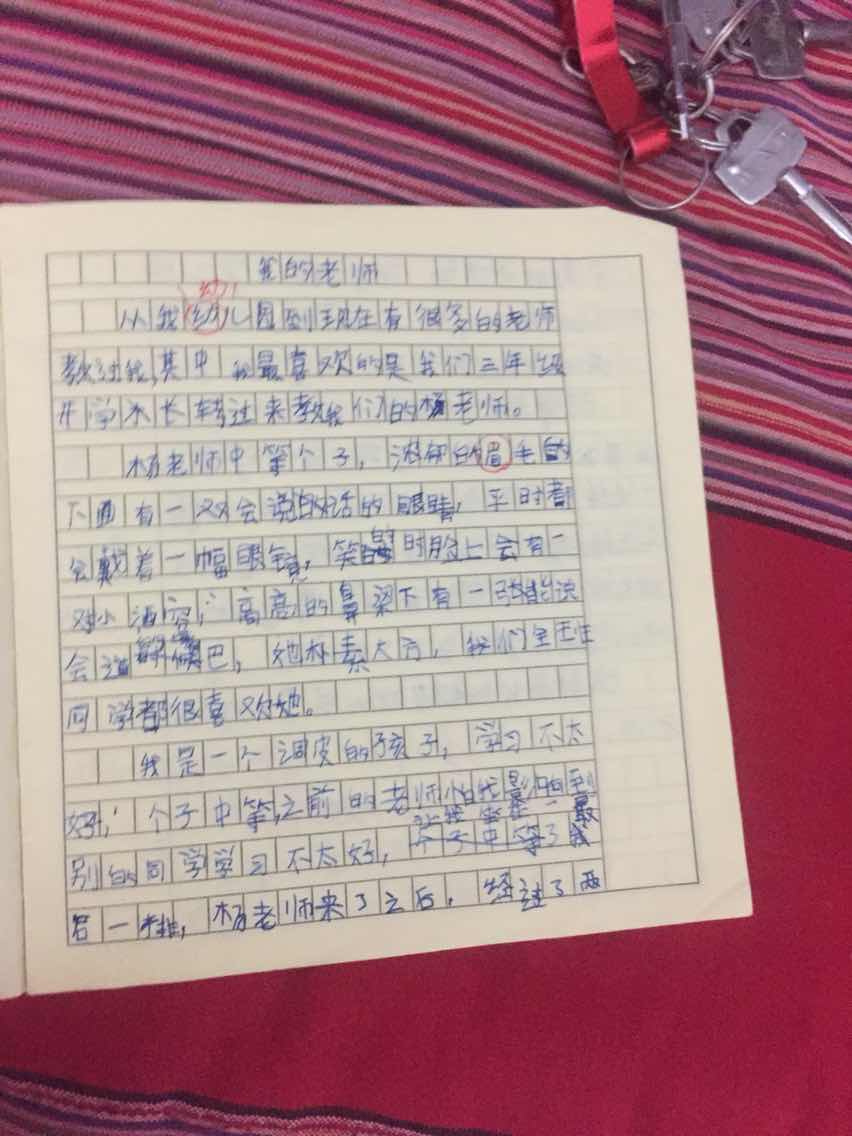 我的老师
幼儿
从我幼儿园到现在有很多的老师
教过我,其中我最喜欢的是我们三年级
开学不长转过来教我们的杨老师。
杨老师中等个子,浓研的眉毛
下面有一双会说话的眼睛,平时都
会戴着一幅眼镜,笑时脸上会有一
对小酒窝,高高的鼻梁下有一张能说
会道嘴巴,她朴素大方,我们全班
同学都很喜欢她。
我是一个调皮的孩子,学习不太
好,个子中等,之前的老师怕我影响到
别的同学学习不太好,让我坐在最
后一排,杨老师来了之后,经过了两